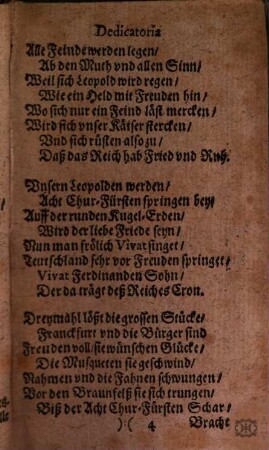 Dedicatoria
Alle Feinde werden legen/
Ab den Muth vnd allen Sinn/
Weil sich Leopold wird regen/
Wie ein Held mit Freuden hin/
Wo sich nur ein Feind läst mercken/
Wird sich vnser Käiser stercken/
Vnd sich rüsten also zu/
Daß das Reich hab Fried vnd Ruh.
Vnsern Leopolden werden/
Acht Chur-Fürsten springen bey/
Auff der runden Kugel-Erden/
Wird der liebe Friede seyn/
Nun man frölich Vivat singet/
Teutschland sehr vor Freuden springet/
Vivat Ferdinanden Sohn/
Der da trägt deß Reiches Cron.
Dreymahl lößt die grossen Stücke/
Franckfurt vnd die Bürger sind
Freuden voll/sie wünschen Glücke/
Die Musqueten sie geschwind/
Nahmen vnd die Fahnen schwungen/
Vor den Braunfelß sie sich trungen/
Biß der Acht Chur-Fürsten Schar/
):( 4 Bracht